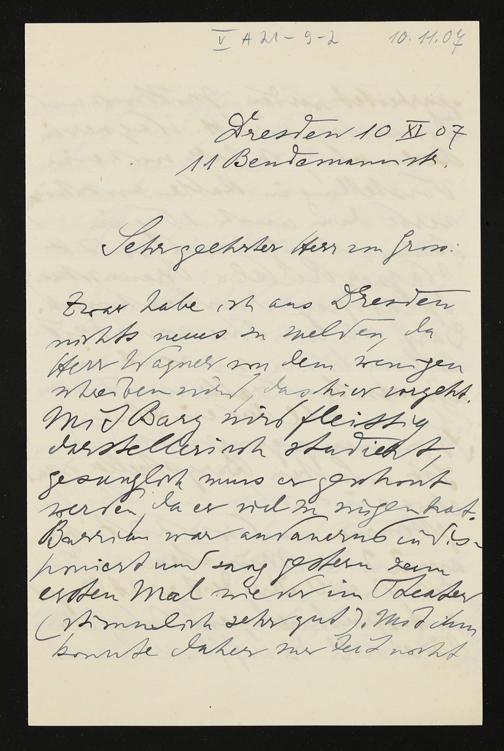 V A 21 - 9 - 2 10.11.07
Dresden 10 XI 07
11 Bendemannstr.
Sehr geehrter Herr von Gross:
Zwar habe ich aus Dresden
nichts neues zu melden, da
Herr Wagner von dem wenigen
schreiben wird, das hier vorgeht.
Mit Bary wird fleissig
darstellerisch studiert,
gesanglich muss er geschont
werden, da er viel zu singen hat.
Burrian war andauernd indis-
poniert und sang gestern zum
ersten Mal wieder im Theater
(stimmlich sehr gut). Mit ihm
konnte daher zur Zeit nicht